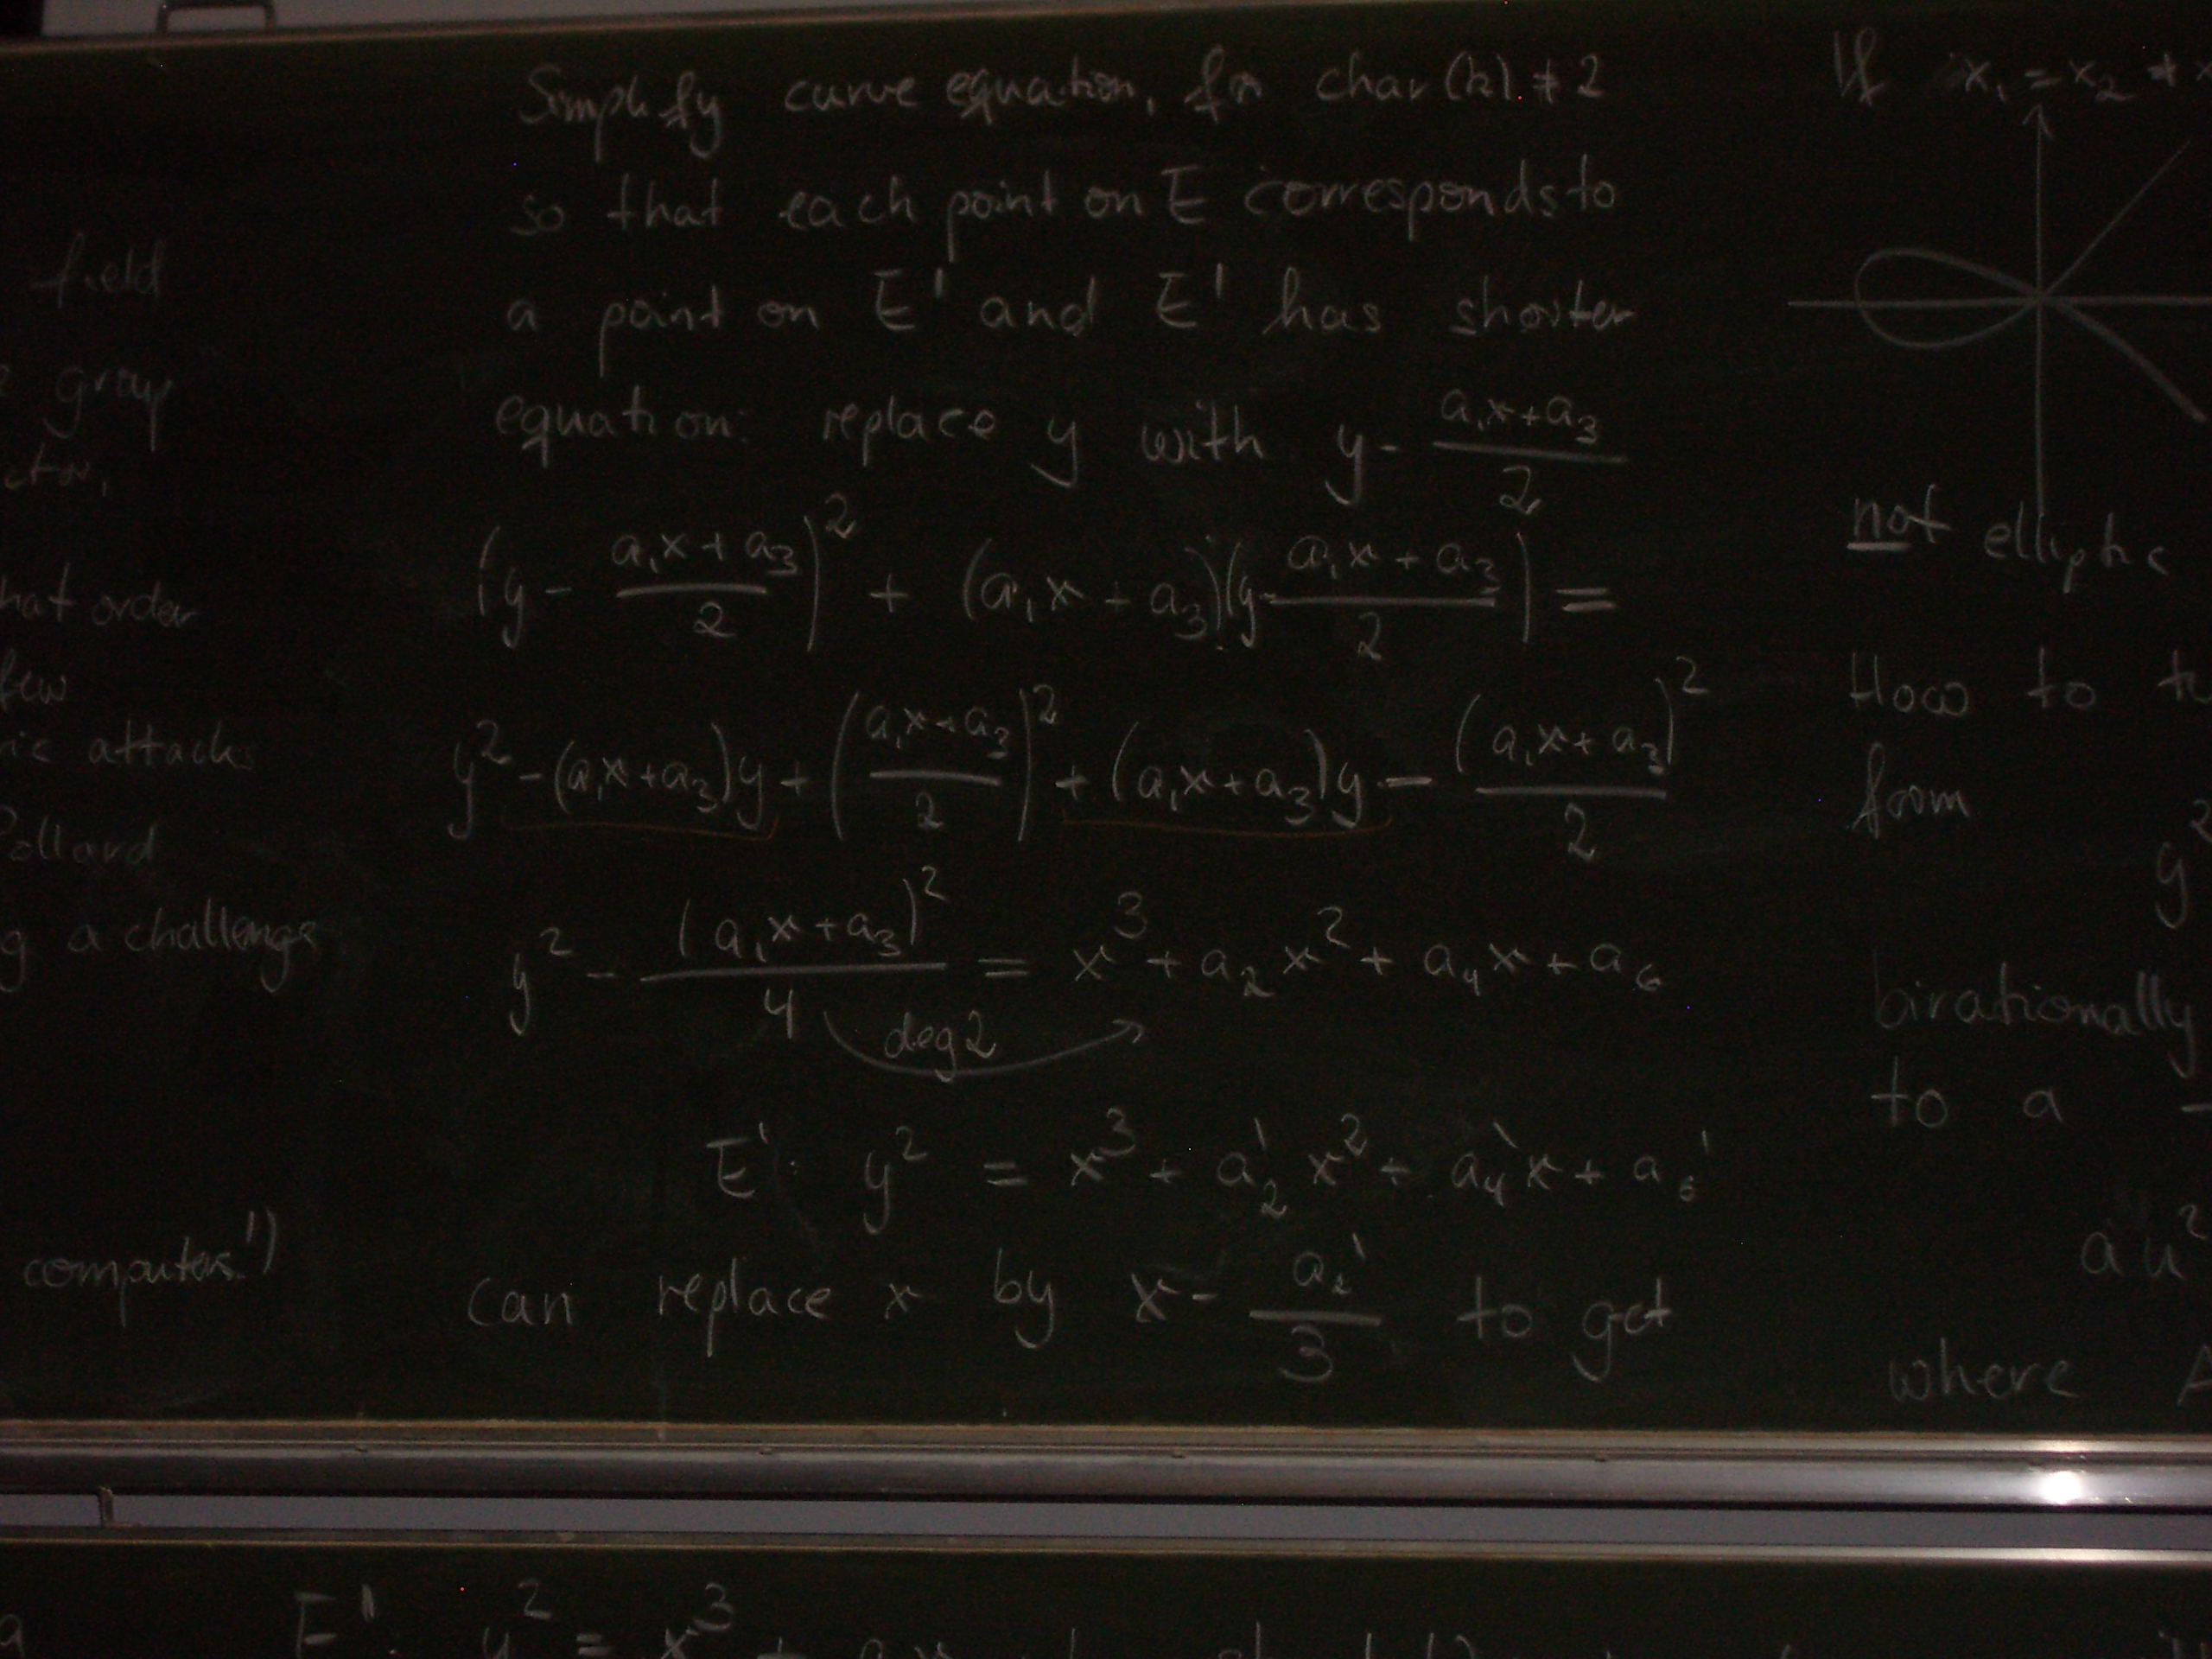 field
group
that order
few
attacks
Pollard
g a challenge
computers")
Simplify curve equation, for char(k) ≠ 2
so that each point on E corresponds to
a point on E' and E' has shorter
equation: replace y with y - (a₁x+a₃)/2
(y - (a₁x+a₃)/2)² + (a₁x+a₃)(y - (a₁x+a₃)/2) =
y² - (a₁x+a₃)y + ((a₁x+a₃)/2)² + (a₁x+a₃)y - (a₁x+a₃)²/2
y² - (a₁x+a₃)²/4 = x³ + a₂x² + a₄x + a₆
deg 2
E': y² = x³ + a₂'x² + a₄'x + a₆'
can replace x by x - a₂'/3 to get
If x₁ = x₂ ≠
not elliptic
How to
from
y²
birationally
to a
au²
where A
E': y² = x³ +